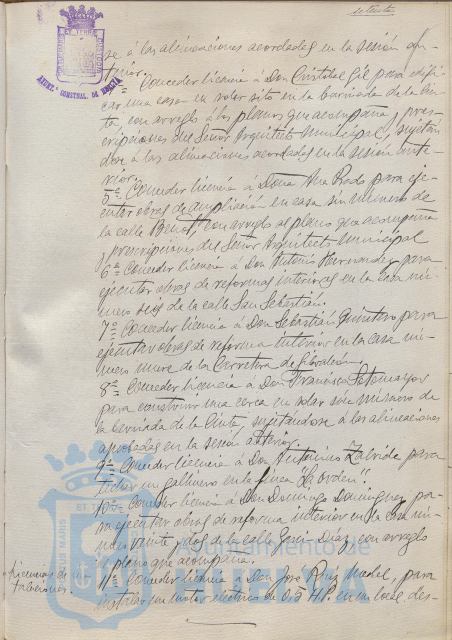 setenta
se á las alineaciones acordadas en la sesión an-
terior.
4ª= Conceder licencia á Don Cristobal Gil para edifi-
car una casa en solar sito en la barriada de la Cin-
ta con arreglo á los planos que acompaña y pres-
cripciones del Señor Arquitecto Municipal, sujetán-
dose á las alineaciones acordadas en la sesión ante-
rior.
5ª= Conceder licencia á Doña Ana Rodo para eje-
cutar obras de ampliación en casa sin número de
la calle Benot, con arreglo al plano que acompaña
y prescripciones del Señor Arquitecto Municipal
6ª= Conceder licencia á Don Antonio Hernandez para
ejecutar obras de reformas interiores en la casa nú-
mero seis de la calle San Sebastián.
7ª= Conceder licencia á Don Sebastián Quintero para
ejecutar obras de reforma interior en la casa nú-
mero nueve de la Carretera de Gibraleón.
8ª= Conceder licencia á Don Francisco Sotomayor
para construir una cerca en solar sin número de
la barriada de la Cinta, sujetándose á las alineaciones
aprobadas en la sesión anterior.
9ª= Conceder licencia á Don Antonino Zalvide para
techar un gallinero en la finca "La orden".
10ª= Conceder licencia á Don Domingo Dominguez pa-
ra ejecutar obras de reforma interior en la casa nú-
mero veinte y dos de la calle Gení Díaz, con arreglo
al plano que acompaña.
Licencias de ins-
talaciones.
11ª= Conceder licencia á Don José Ruiz Madel, para
instalar un motor eléctrico de 0.5 H.P. en un local des-
AYUNT.º CONSTNAL. DE HUELVA
PORTUS MARIS ET TERRÆ CUSTODIA
Ayuntamiento de
HUELVA